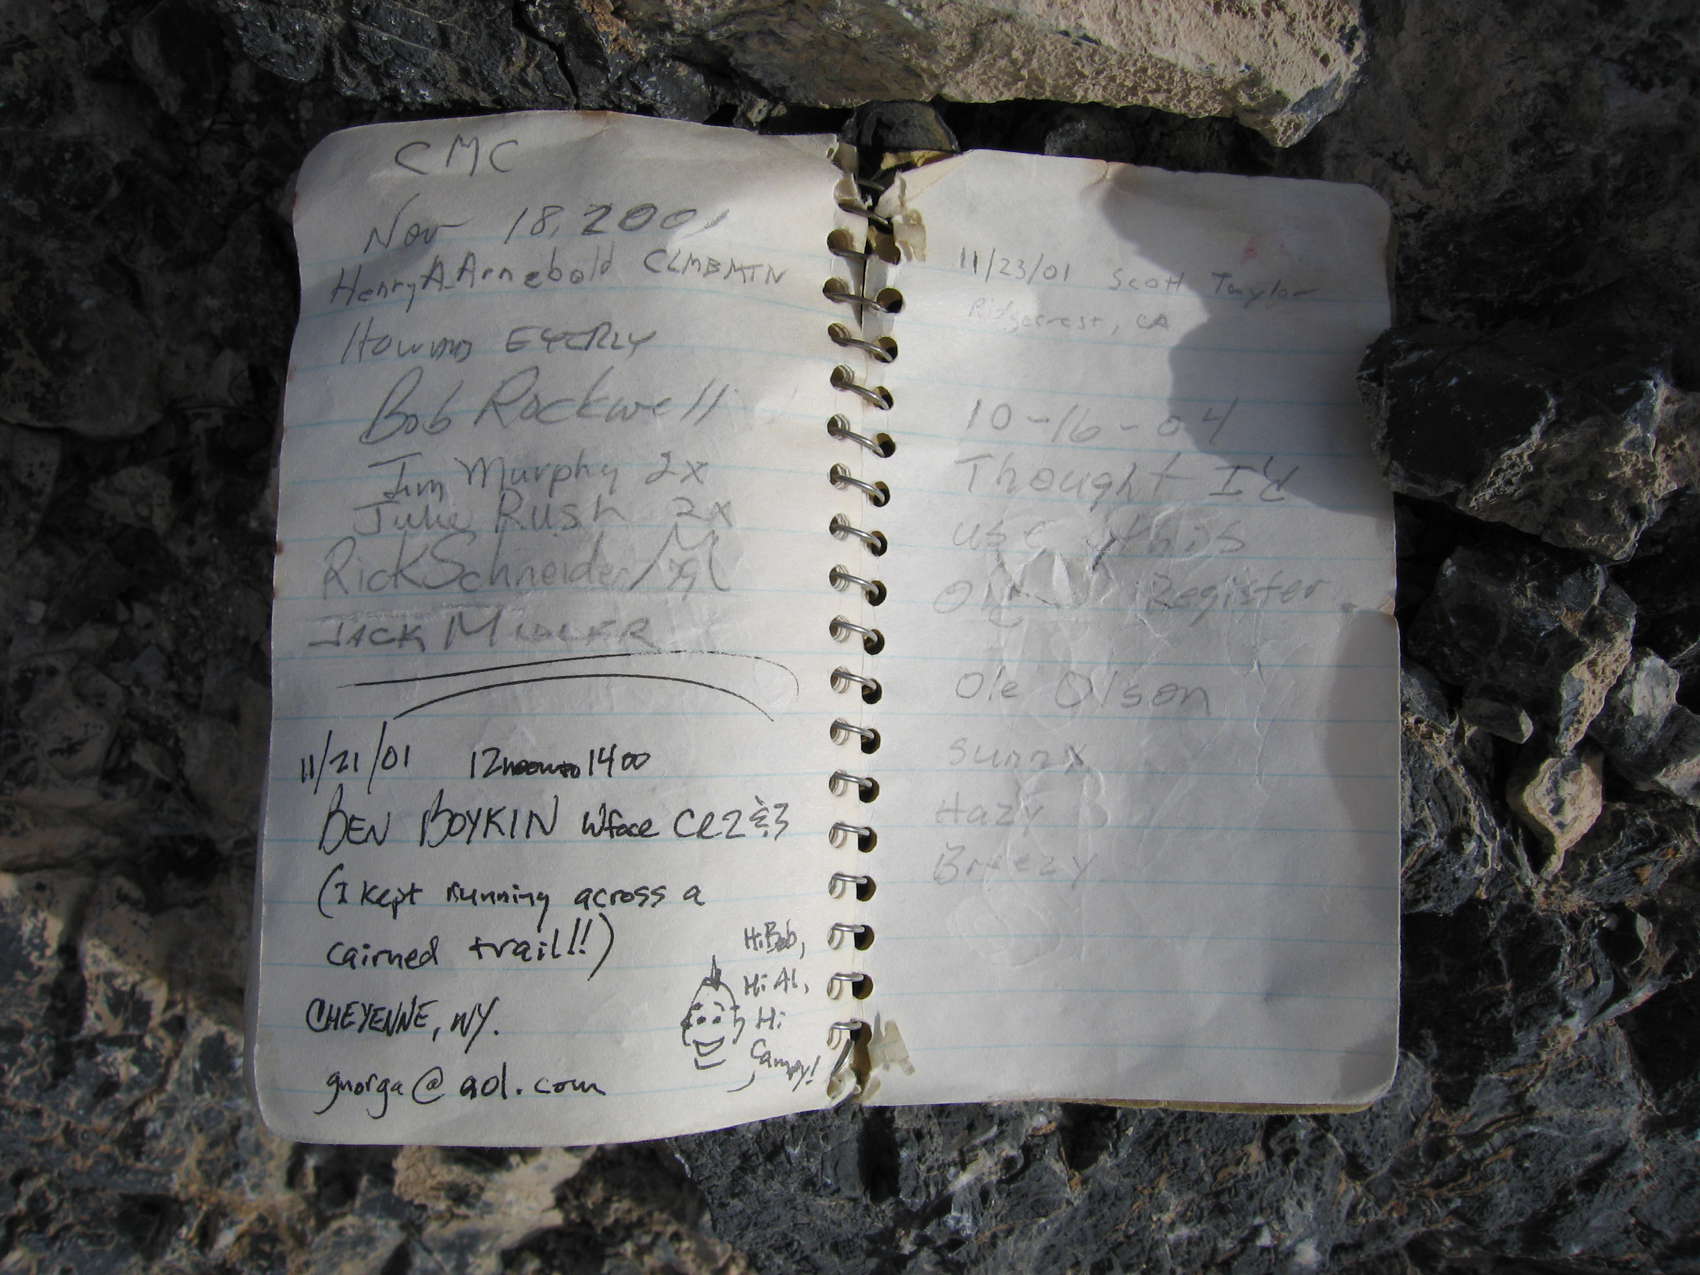 CMC
Nov 18, 2001
Henry A. Arnebold CLMBMTN
Bob Rockwell
Jim Murphy 2x
Julie Rush 2x
Rick Schneider
JACK MILLER
11/21/01 12noon to 1400
BEN BOYKIN W face CL 2 & 3
(I kept running across a
cairned trail!!)
CHEYENNE, WY.
gnorga@aol.com
Hi Bob,
Hi Al,
Hi
Campy!
11/23/01 Scott Taylor
Ridgecrest, CA
10-16-04
Thought I'd
use this
Old Register
Ole Olson
Sunny
Hazy
Breezy